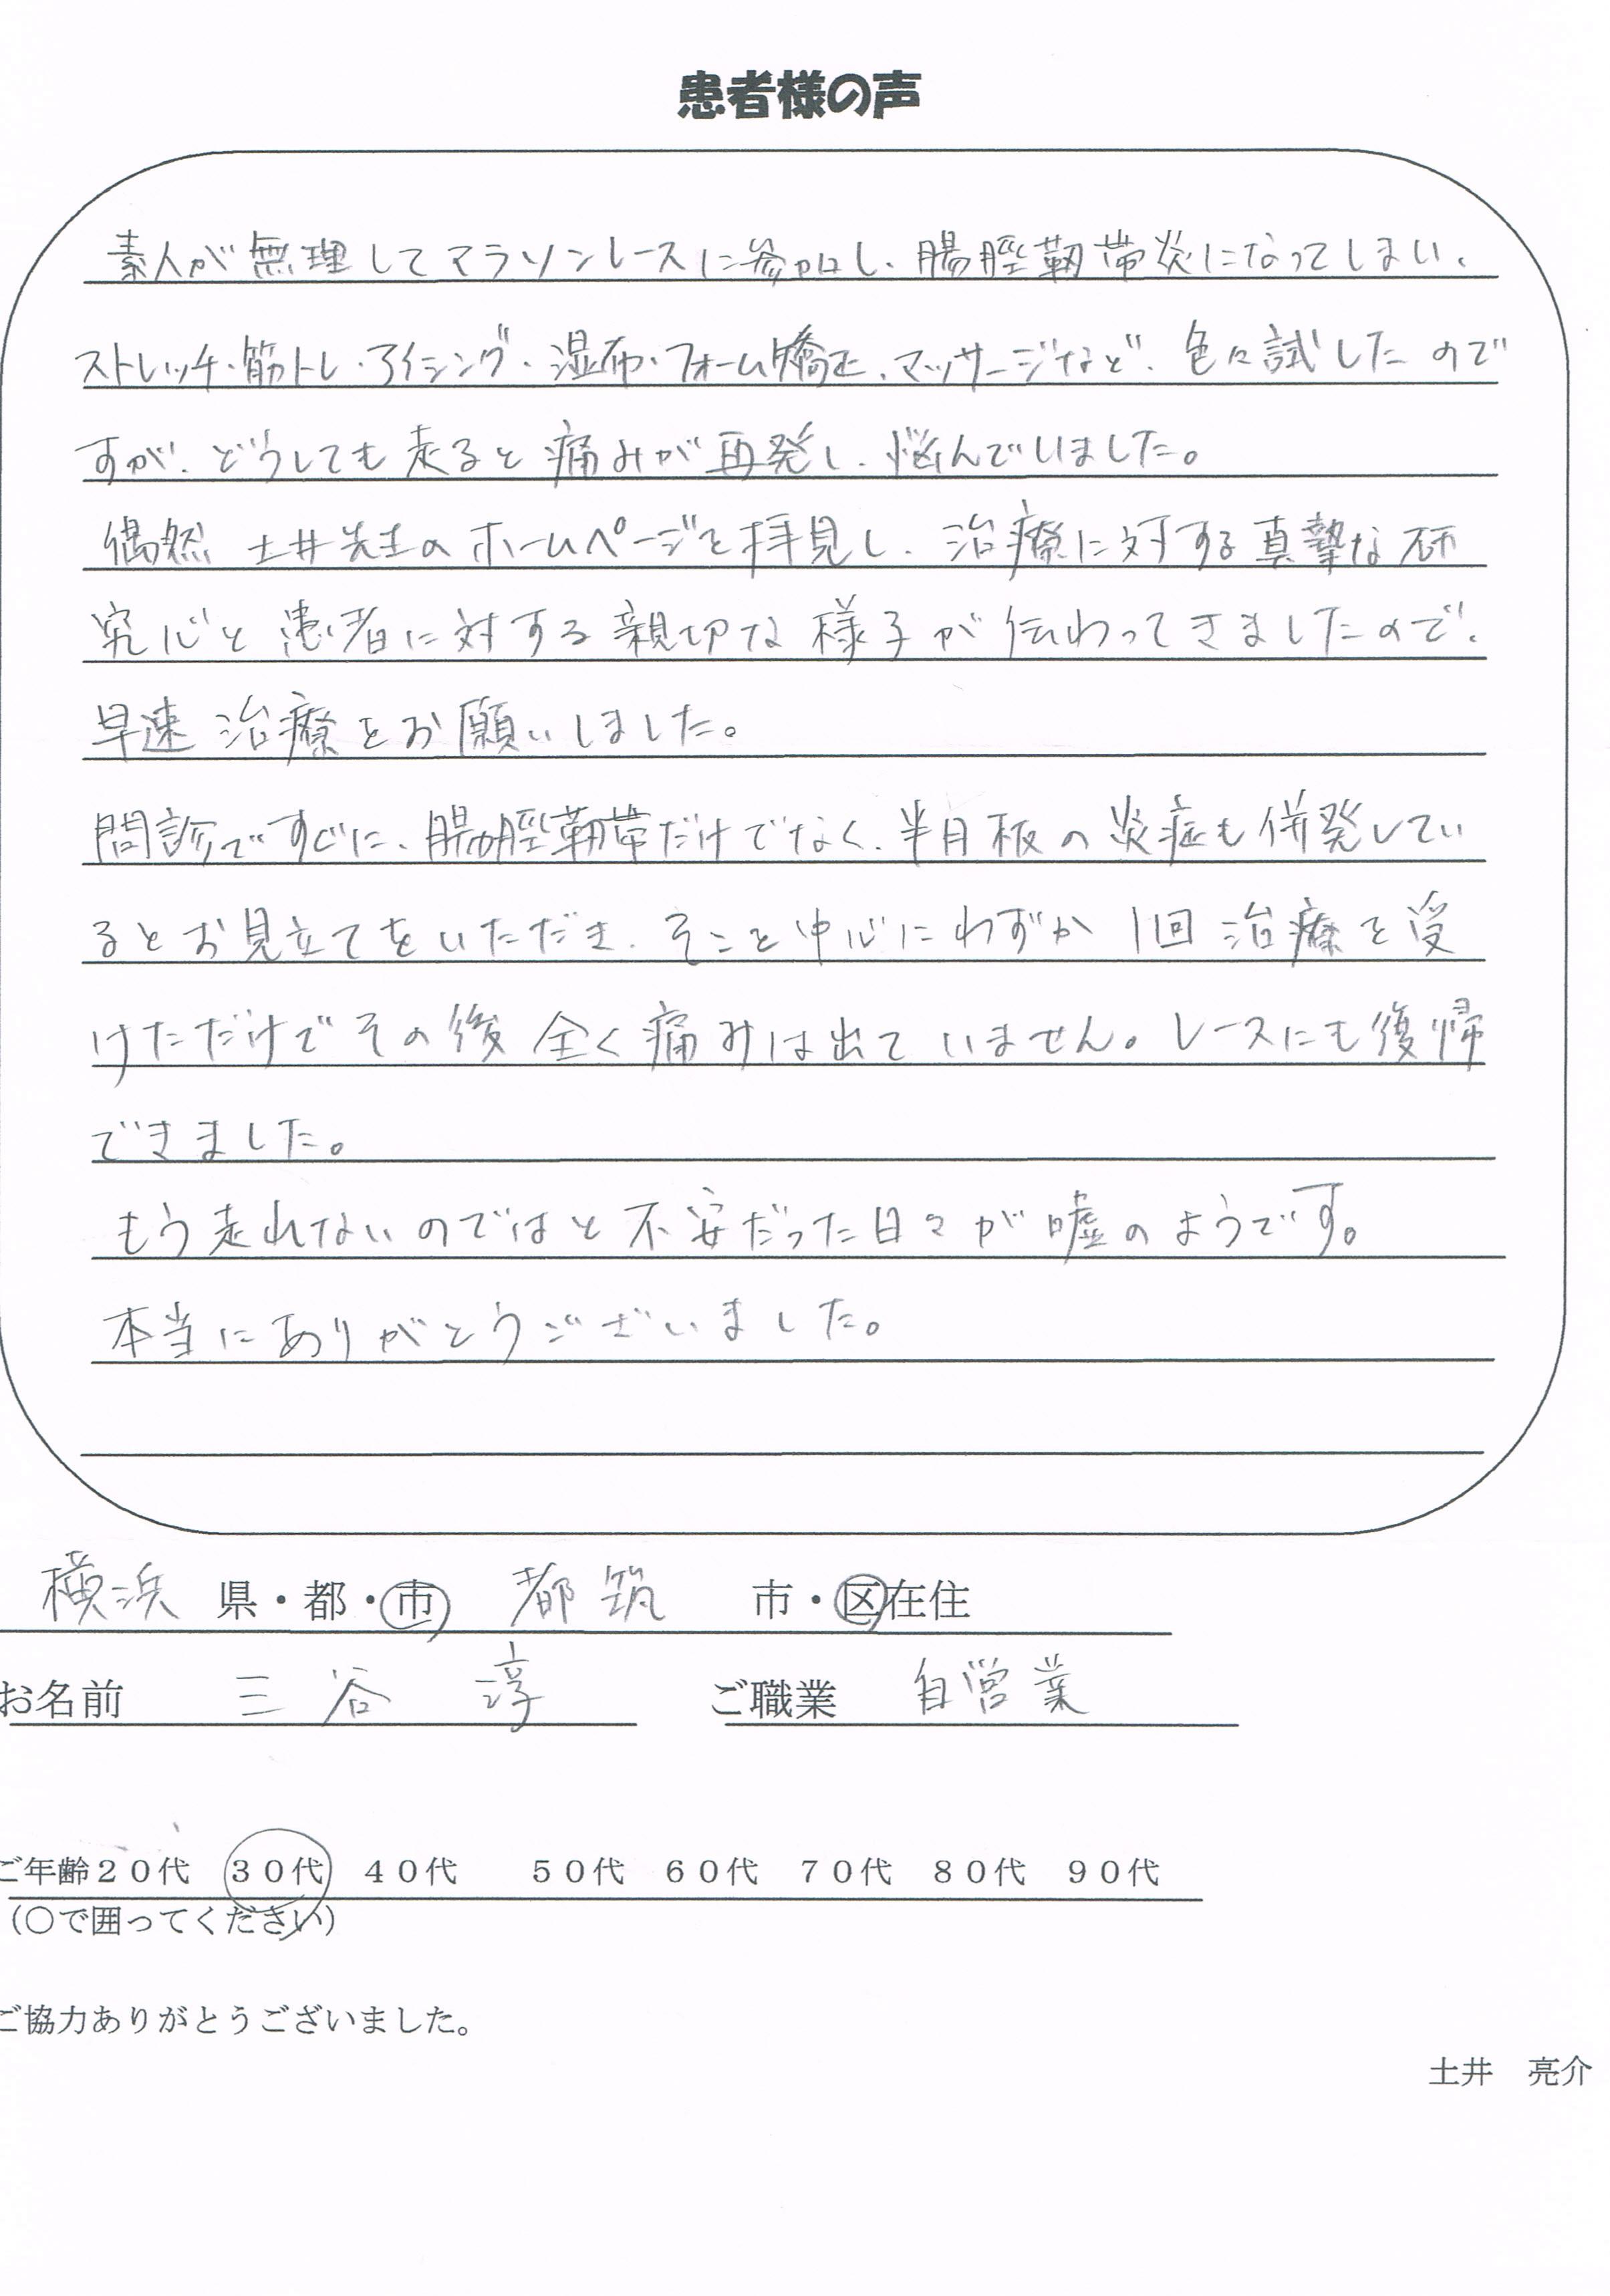 患者様の声
素人が無理してマラソンレースに参加し、腸脛靭帯炎になってしまい、
ストレッチ・筋トレ・アイシング・湿布・フォーム矯正、マッサージなど、色々試したので
すが、どうしても走ると痛みが再発し、悩んでいました。
偶然 土井先生のホームページを拝見し、治療に対する真摯な研
究心と患者に対する親切な様子が伝わってきましたので、
早速治療をお願いしました。
問診ですぐに、腸脛靭帯だけでなく、半月板の炎症も併発してい
るとお見立てをいただき、そこを中心にわずか1回治療を受
けただけでその後全く痛みは出ていません。レースにも復帰
できました。
もう走れないのではと不安だった日々が嘘のようです。
本当にありがとうございました。
横浜 県・都・市 都筑 市・区在住
お名前 三谷 淳 ご職業 自営業
ご年齢20代 30代 40代 50代 60代 70代 80代 90代
(○で囲ってください)
ご協力ありがとうございました。
土井 亮介